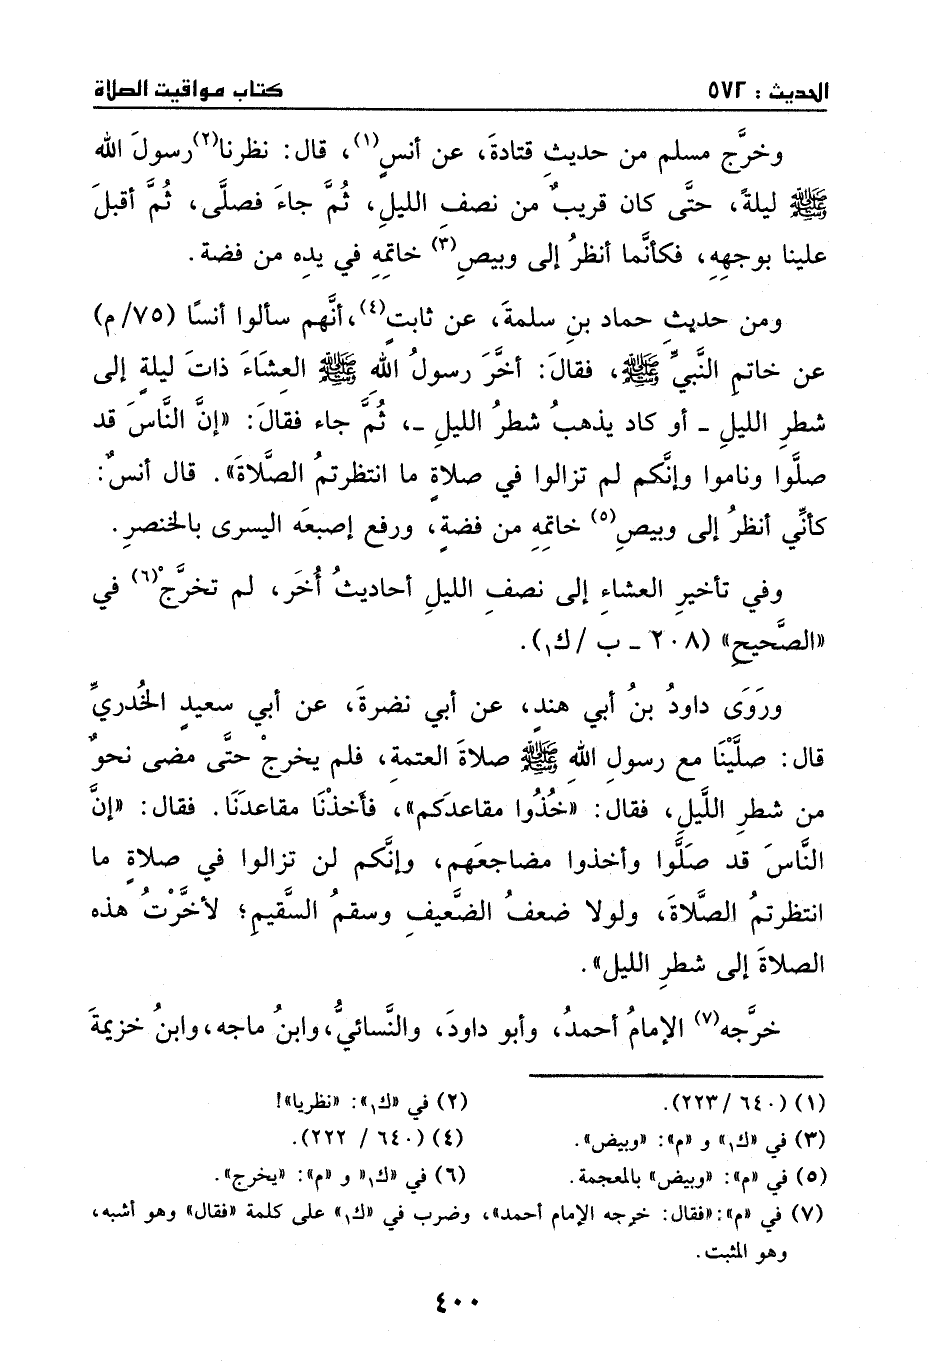 الحديث : ٥٧٢ كتاب مواقيت الصلاة
وخرَّج مسلم من حديثِ قتادةَ، عن أنسٍ(١)، قال: نظرنا(٢) رسولَ الله
ﷺ ليلةً، حتَّى كان قريبٌ من نصفِ الليلِ، ثُمَّ جاءَ فصلَّى، ثُمَّ أقبلَ
علينا بوجهِهِ، فكأنَّما أنظرُ إلى وبيصِ(٣) خاتمِهِ في يدِه من فضة.
ومن حديثِ حماد بنِ سلمةَ، عن ثابتٍ(٤)، أنَّهم سألوا أنسًا (٧٥/م)
عن خاتمِ النَّبيِّ ﷺ، فقالَ: أخَّرَ رسولُ اللهِ ﷺ العشَاءَ ذاتَ ليلةٍ إلى
شطرِ الليلِ ـ أو كاد يذهبُ شطرُ الليلِ ـ، ثُمَّ جاء فقالَ: «إنَّ النَّاسَ قد
صلَّوا وناموا وإنَّكم لم تزالوا في صلاةٍ ما انتظرتمُ الصَّلاةَ». قال أنسٌ:
كأنِّي أنظرُ إلى وبيصِ(٥) خاتمِهِ من فضةٍ، ورفع إصبعَه اليسرى بالخنصرِ.
وفي تأخيرِ العشاءِ إلى نصفِ الليلِ أحاديثُ أُخَر، لم تخرَّجْ(٦) في
«الصَّحيحِ» (٢٠٨ ـ ب /ك١).
ورَوَى داودُ بنُ أبي هندٍ، عن أبي نضرةَ، عن أبي سعيدٍ الخُدريِّ
قال: صلَّيْنَا مع رسولِ اللهِ ﷺ صلاةَ العتمةِ، فلم يخرجْ حتَّى مضى نحوٌ
من شطرِ اللَّيلِ، فقال: «خُذُوا مقاعدَكم»، فأخذْنَا مقاعدَنَا. فقال: «إنَّ
النَّاسَ قد صَلَّوا وأخذوا مضاجعَهم، وإنَّكم لن تزالوا في صلاةٍ ما
انتظرتمُ الصَّلاةَ، ولولا ضعفُ الضَّعيفِ وسقمُ السَّقيمِ؛ لأخَّرْتُ هذه
الصلاةَ إلى شطرِ الليل».
خرَّجه(٧) الإمامُ أحمدُ، وأبو داودَ، والنَّسائيُّ، وابنُ ماجه، وابنُ خزيمةَ
(١) (٦٤٠/٢٢٣). (٢) في «ك١»: «نظريا»!
(٣) في «ك١» و «م»: «وبيض». (٤) (٦٤٠/ ٢٢٢).
(٥) في «م»: «وبيض» بالمعجمة. (٦) في «ك١» و «م»: «يخرج».
(٧) في «م»: «فقال: خرجه الإمام أحمد»، وضرب في «ك١» على كلمة «فقال» وهو أشبه،
وهو المثبت.
٤٠٠